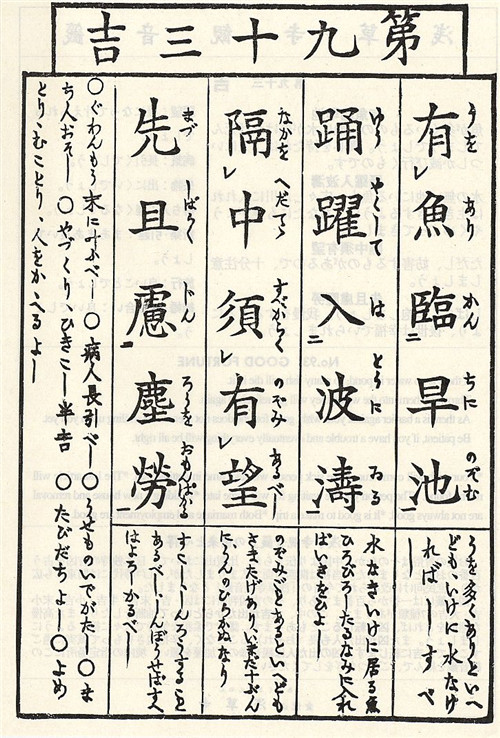 第九十三吉
有レ魚臨二早池
うを あり かん ちに のぞむ
うを多くありといへ
ども、いけに水なけ
れば
踊躍入二波濤一
ゆうやくして はとうに ゐる
水なきいけに居る魚
ひろびろしたるなみに入れ
ばいきをひよし
隔レ中須レ有レ望
なかを へだゝる すべからく のぞみ あるべし
のぞみごとありといへども
さまたげありていまだ十ぶん
にうんのひらかぬなり
先且慮二塵勞一
まづ しばらく ぢん ろうを おもんばかる
すこしんろうすること
あるべししんぼうせばすへ
はよろしかるべし
〇ぐわんもう末に叶ふべし〇病人長引べし〇うせものいでがたし〇ま
ち人おそし〇やづくりひきこし半吉〇たびだちよし〇よめ
とりむことり、人をかゝへるよし